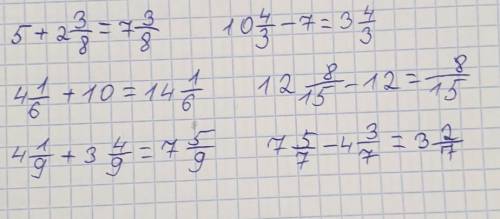 5 + 2 3/8 = 7 3/8
10 4/3 − 7 = 3 4/3
4 1/6 + 10 = 14 1/6
12 8/15 − 12 = 8/15
4 1/9 + 3 4/9 = 7 5/9
7 5/7 − 4 3/7 = 3 2/7